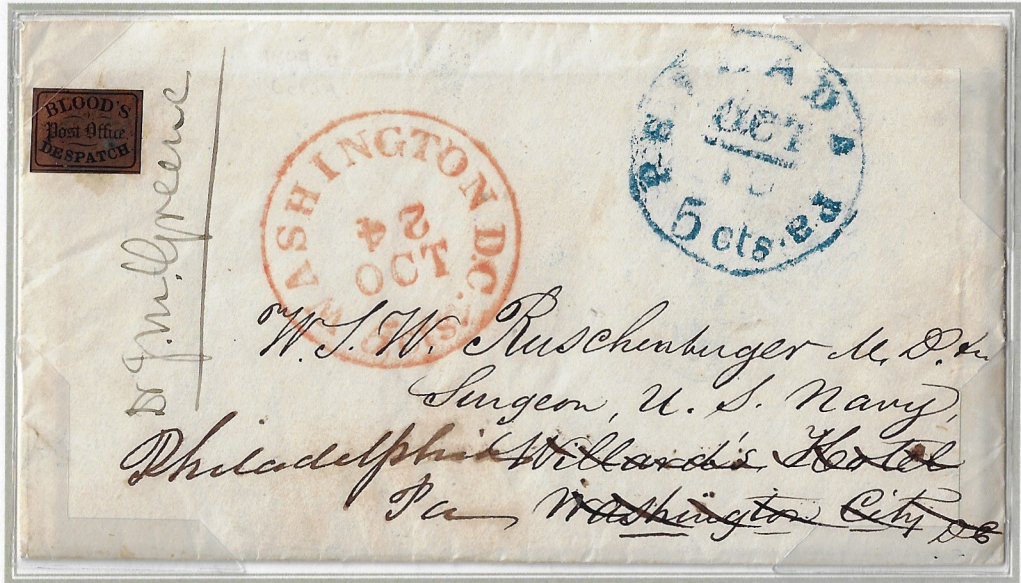 BLOOD'S
Post Office
DESPATCH
Dr J. M. Greene
WASHINGTON D.C.
24
OCT
5 cts.
OCT
PHILADA Pa.
5 cts.
W. S. W. Ruschenburger M. D.
Surgeon, U. S. Navy,
Philadelphia Willard's Hotel
Pa Washington City DC